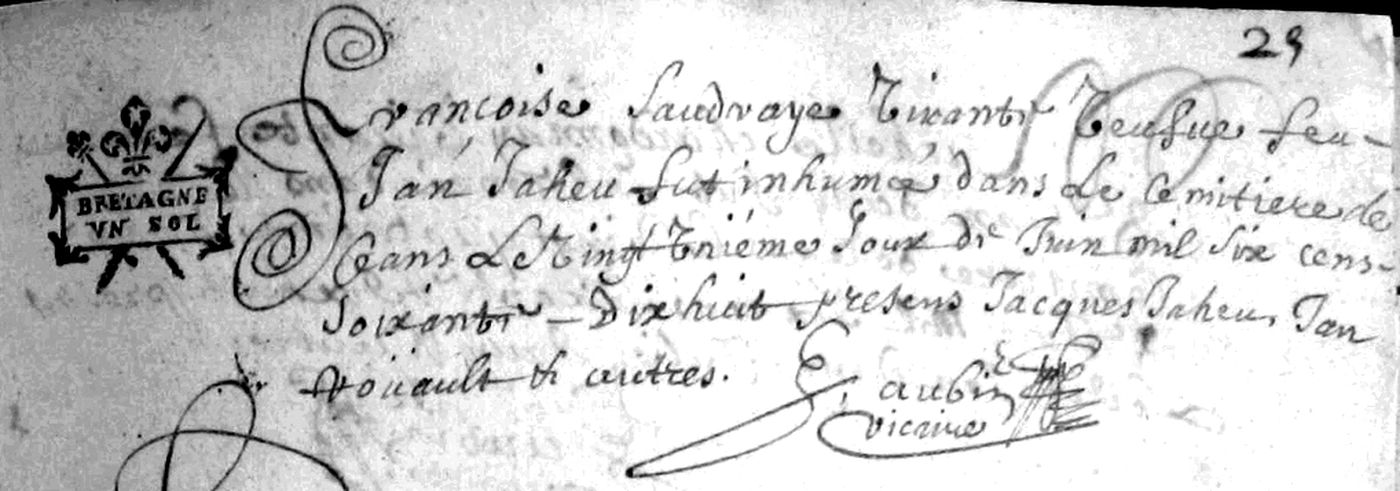 29
BRETAGNE
VN SOL
Francoise Saudraye Vivante Veufue feu
Jan Jaheu fut inhumée dans Le Cemitiere de
Ceans Le Vingt Vniéme Jour de Juin mil six cens
Soixante - Dix huict presens Jacques Jaheu, Jan
Roüault & autres.
aubin
vicaire